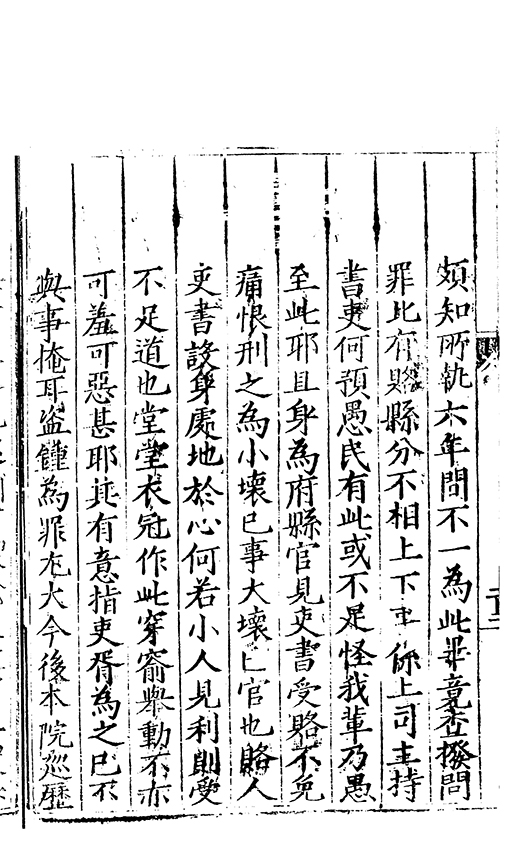 頗知所執六年間不一為此畢竟查撥問
罪比有縣縣分不相上下事係上司主持
書吏何預愚民有此或不足怪我輩乃愚
至此耶且身為府縣官見吏書受賂不免
痛恨刑之為小壞已事大壞官也賂人
吏書設身處地於心何若小人見利則受
不足道也堂堂衣冠作此穿窬舉動不亦
可羞可惡甚耶其有意指吏胥為之已不
與事掩耳盜鍾為罪尤大今後本院巡歷